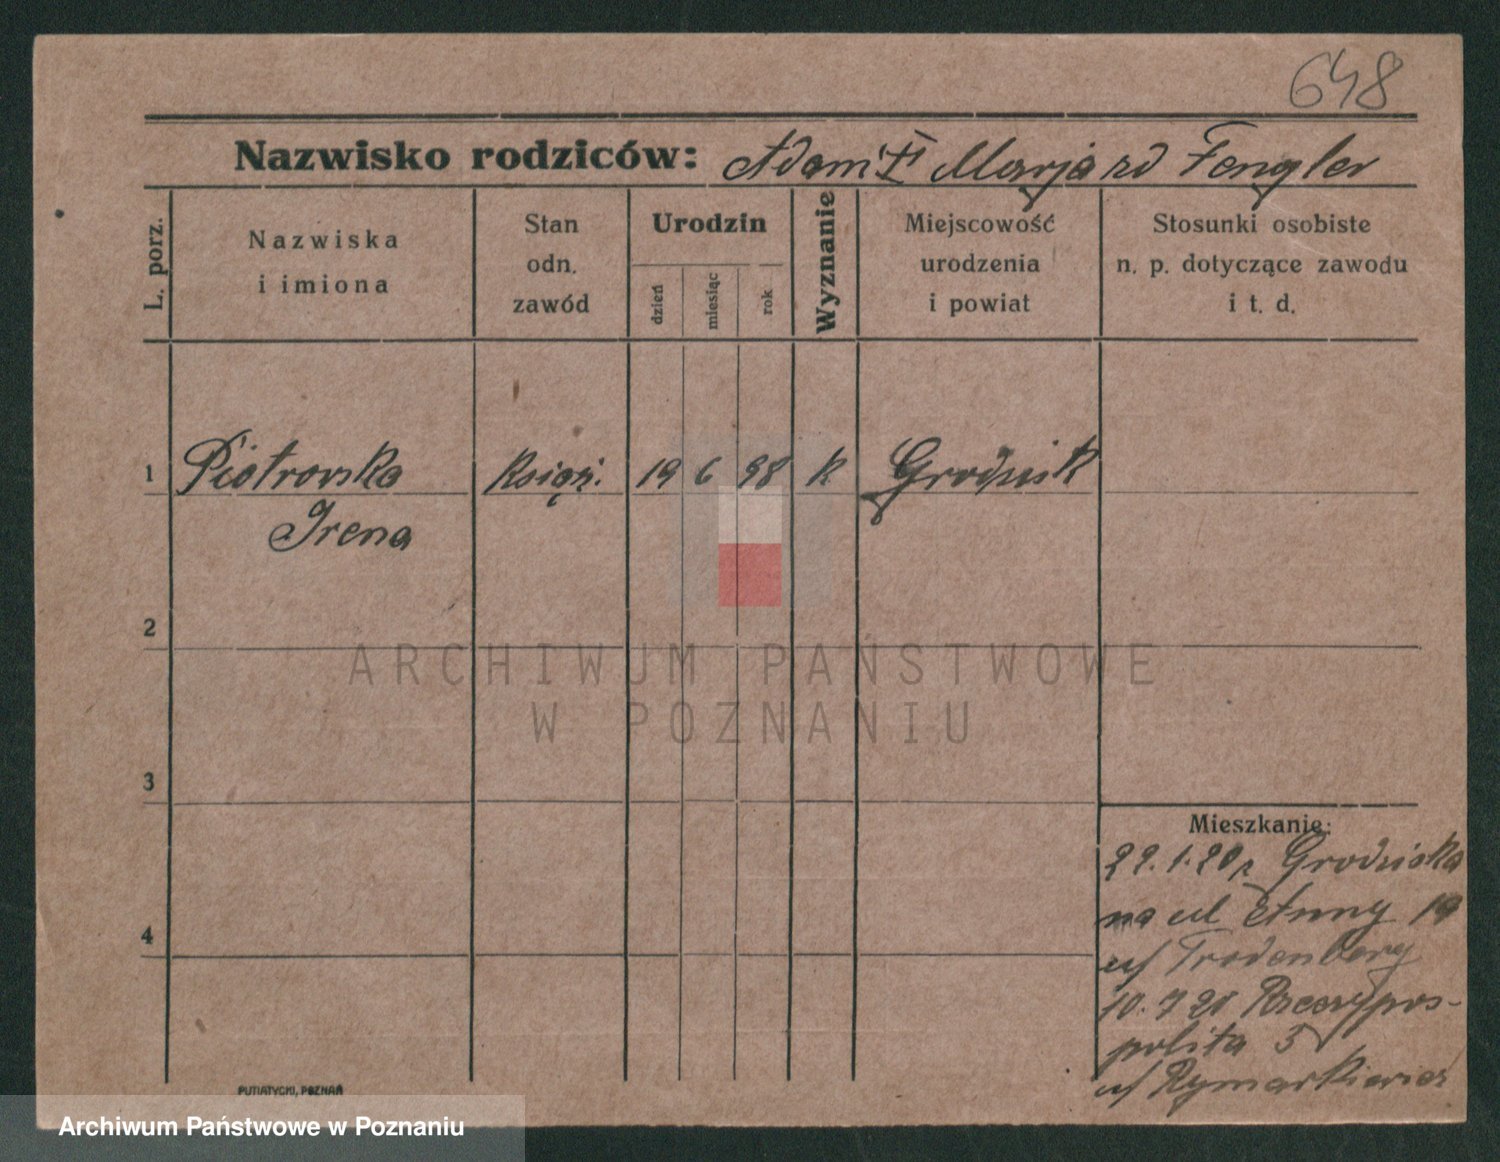 648
Nazwisko rodziców: Adam Marja zd Fengler
L. porz.
Nazwiska
i imiona
Stan
odn.
zawód
Urodzin
dzień
miesiąc
rok
Wyznanie
Miejscowość
urodzenia
i powiat
Stosunki osobiste
n. p. dotyczące zawodu
i t. d.
1 Piotrovska Księż. 19 6 98 k Grodzisk
Irena
2
ARCHIWUM PAŃSTWOWE
W POZNANIU
3
Mieszkanie:
22.1.20 z Grodziska
na ul 19
4
u/ Trodenberg
10.7 20 Rzeczypos-
polita 5
u/ Rymarkiewicz
PUTIATYCKI, POZNAŃ
Archiwum Państwowe w Poznaniu